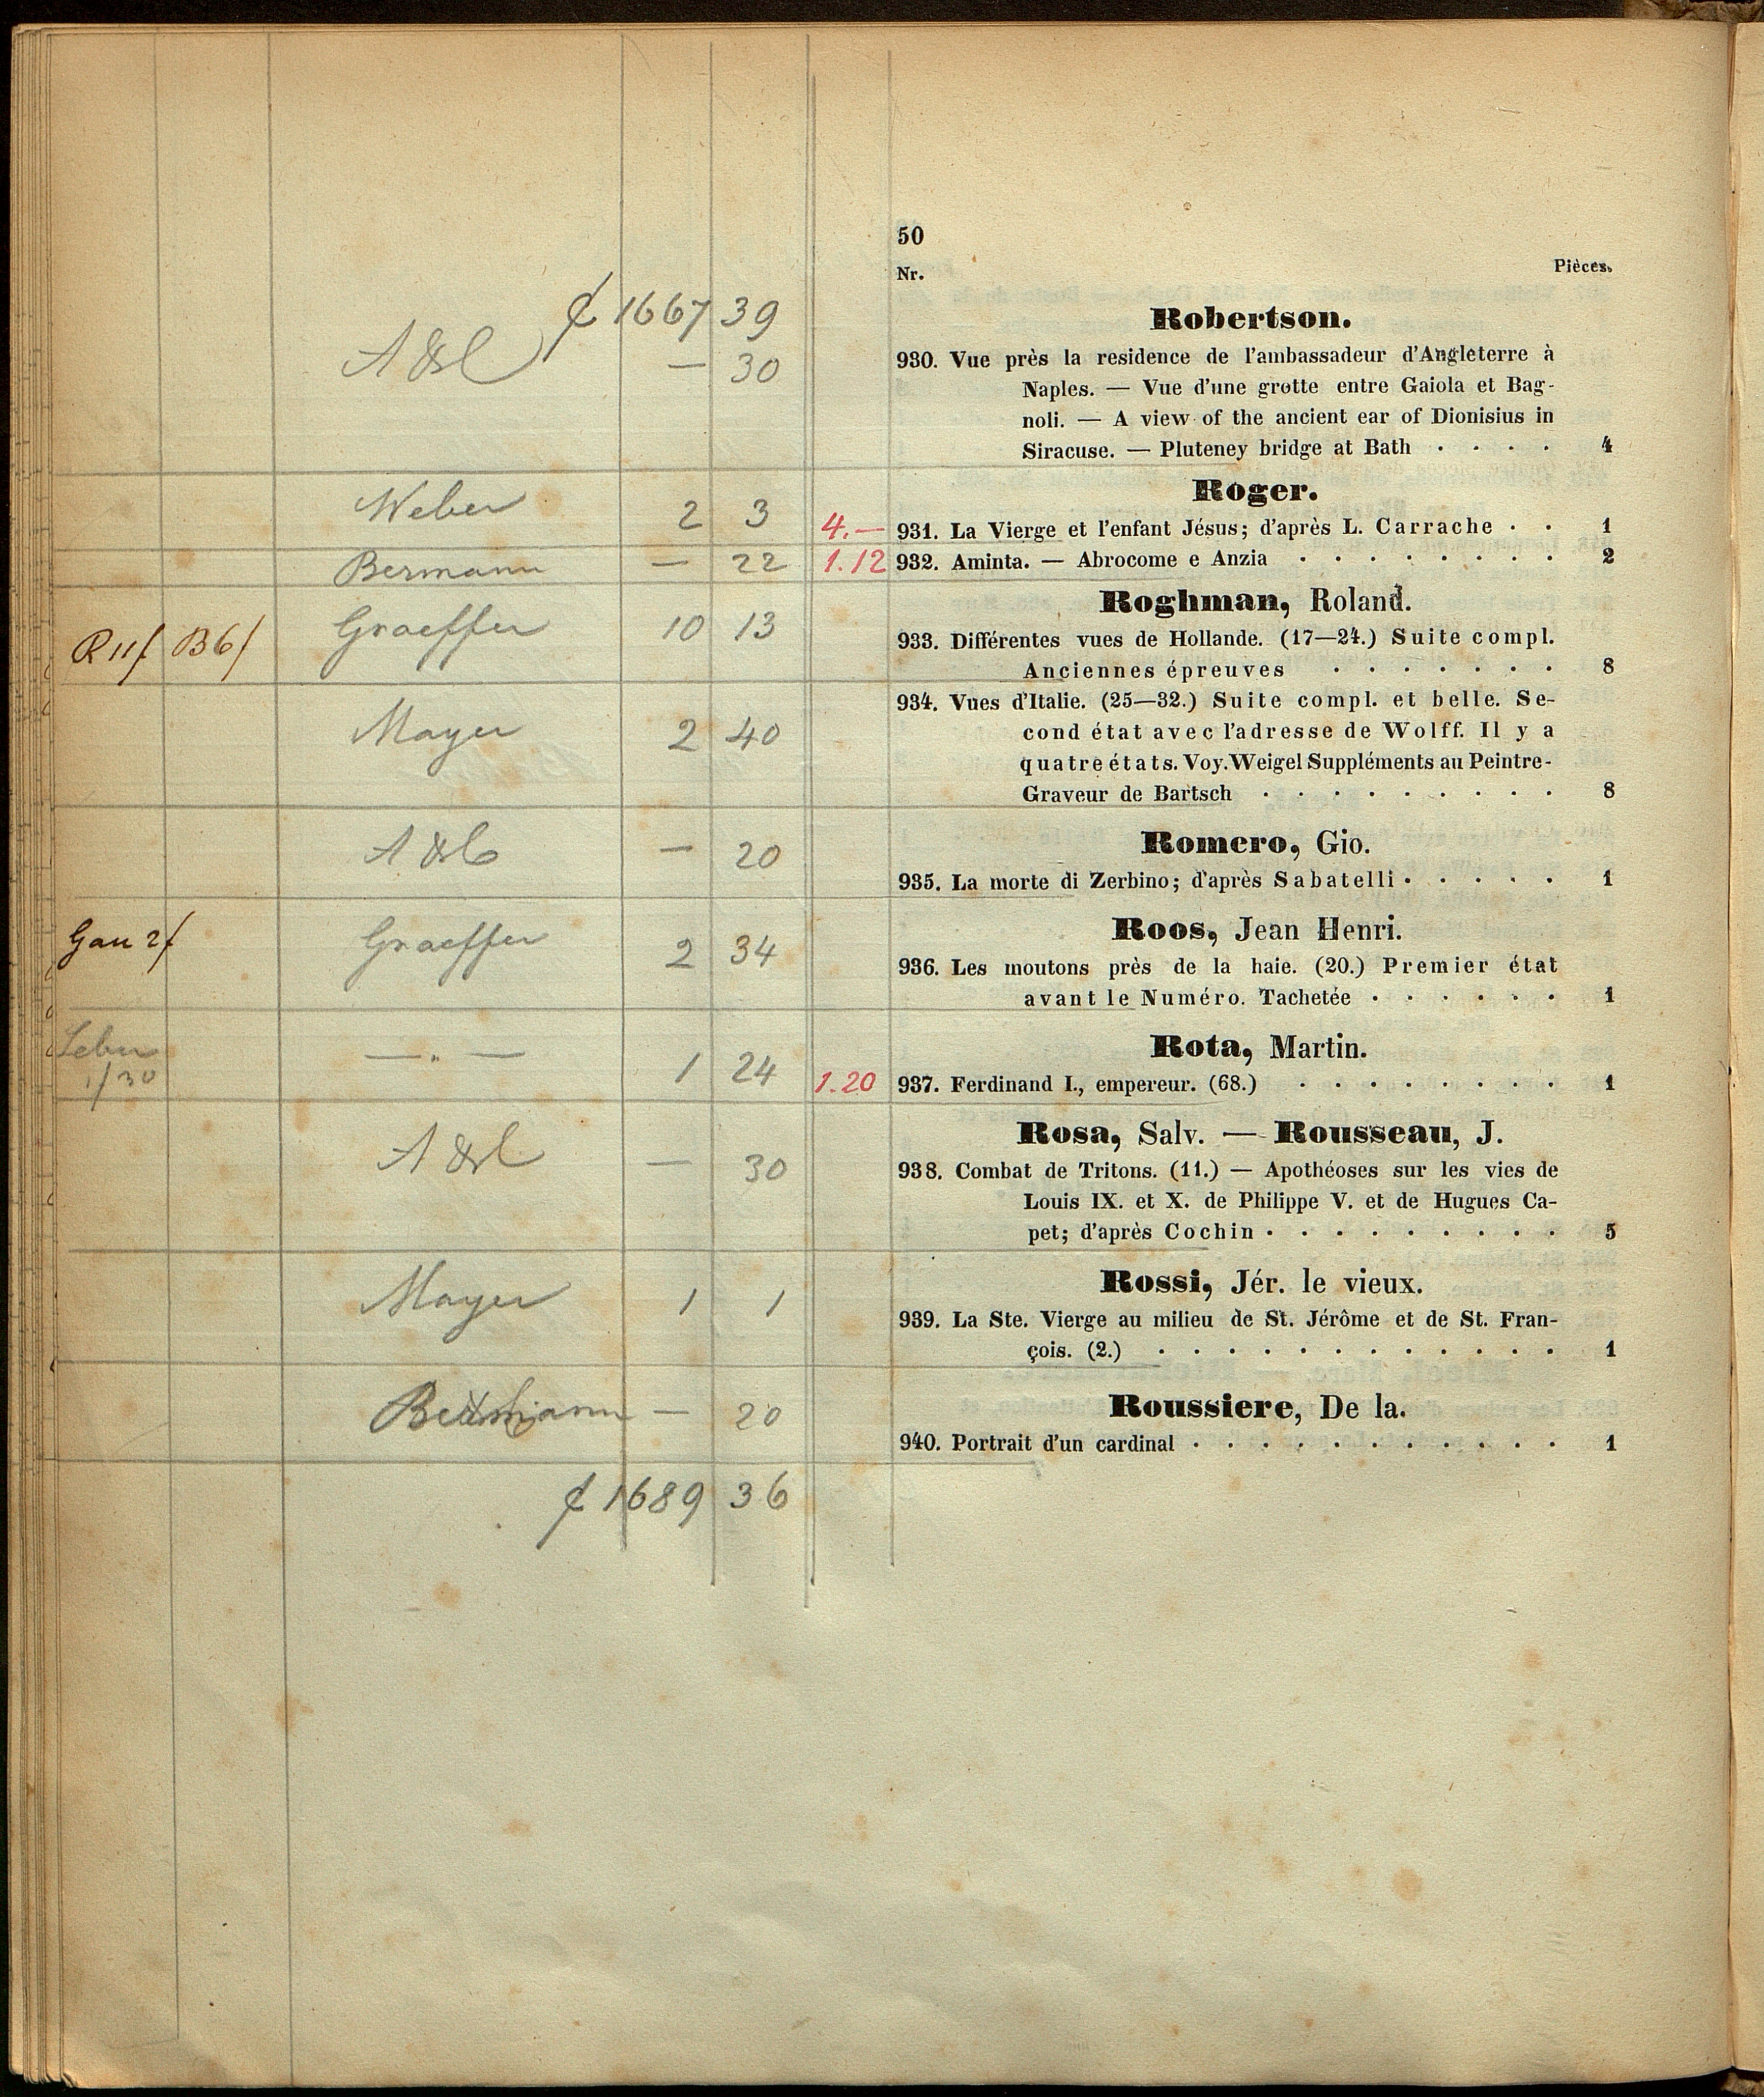 50
Nr. Pièces.
1667 39
Robertson.
— 30
930. Vue près la residence de l'ambassadeur d'Angleterre à
Naples. — Vue d'une grotte entre Gaiola et Bag-
noli. — A view of the ancient ear of Dionisius in
Siracuse. — Pluteney bridge at Bath . . . . 4
Roger.
Weber 2 3 4.— 931. La Vierge et l'enfant Jésus; d'après L. Carrache . . 1
Bermann — 22 1.12 932. Aminta. — Abrocome e Anzia . . . . . . . . 2
Roghman, Roland.
R 11f B6f Graeffer 10 13 933. Différentes vues de Hollande. (17—24.) Suite compl.
Anciennes épreuves . . . . . . . 8
Mayer 2 40 934. Vues d'Italie. (25—32.) Suite compl. et belle. Se-
cond état avec l'adresse de Wolff. Il y a
quatre états. Voy. Weigel Suppléments au Peintre-
Graveur de Bartsch . . . . . . . . . 8
Romero, Gio.
— 20 935. La morte di Zerbino; d'après Sabatelli . . . . . 1
Roos, Jean Henri.
Gau 2f Graeffer 2 34 936. Les moutons près de la haie. (20.) Premier état
avant le Numéro. Tachetée . . . . . . 1
Rota, Martin.
1f30 — " — 1 24 1.20 937. Ferdinand I., empereur. (68.) . . . . . . . . 1
Rosa, Salv. — Rousseau, J.
— 30 938. Combat de Tritons. (11.) — Apothéoses sur les vies de
Louis IX. et X. de Philippe V. et de Hugues Ca-
pet; d'après Cochin . . . . . . . . . 5
Rossi, Jér. le vieux.
Mayer 1 1 939. La Ste. Vierge au milieu de St. Jérôme et de St. Fran-
çois. (2.) . . . . . . . . . . . . 1
Roussiere, De la.
— 20 940. Portrait d'un cardinal . . . . . . . . . . . 1
1689 36